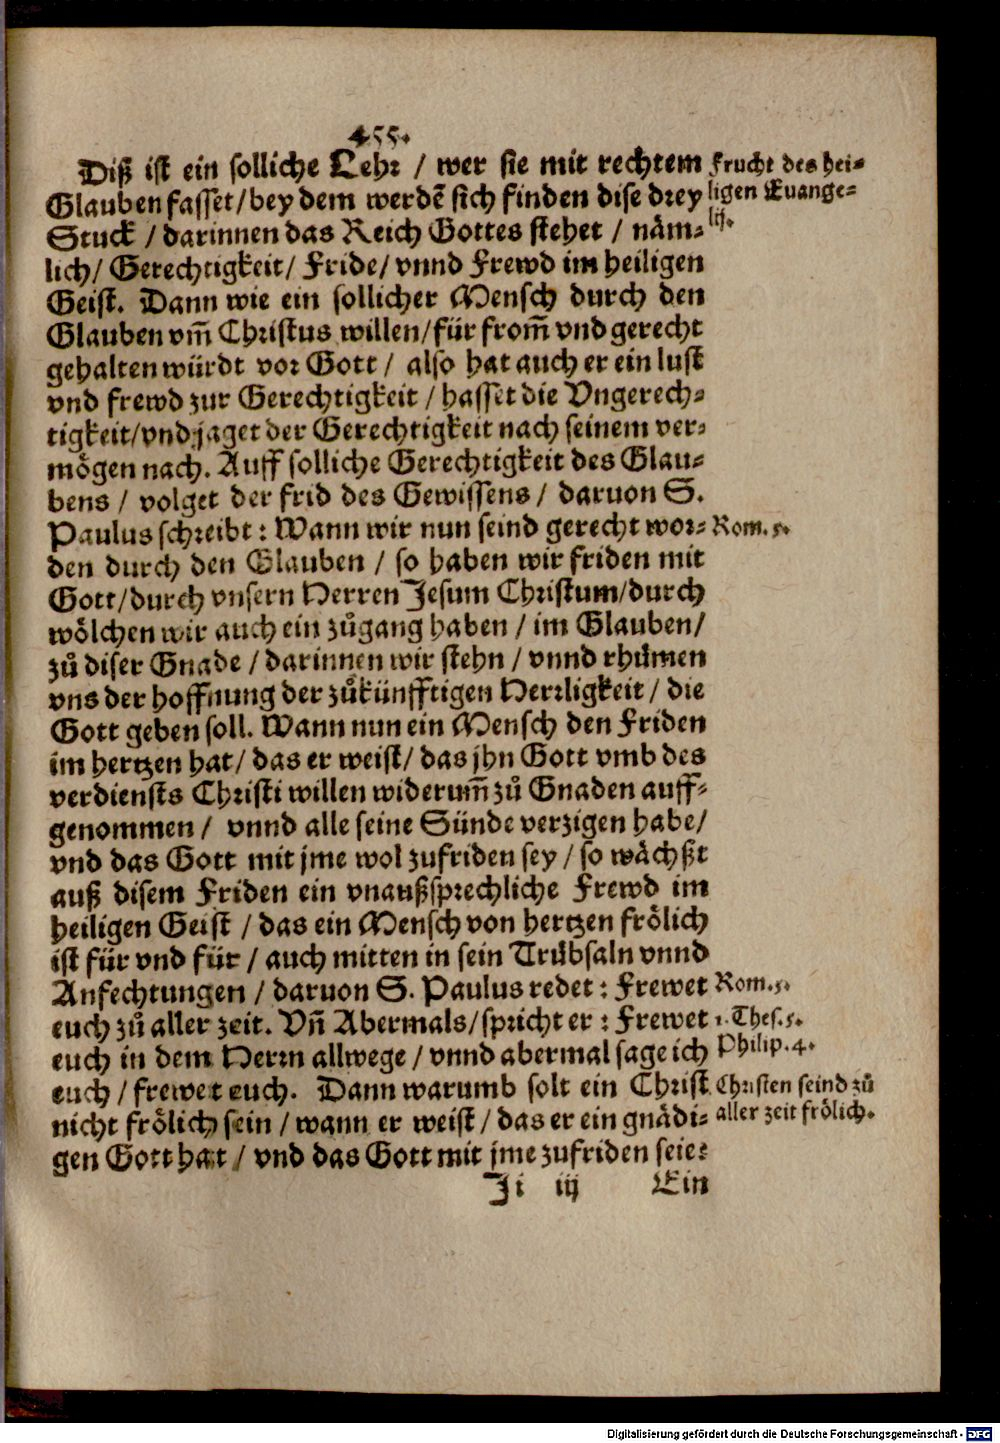 455.
Diß ist ein solliche Lehr / wer sie mit rechtem
Frucht des hei-
Glauben fasset / bey dem werdẽ sich finden dise drey
ligen Euange-
lij.
Stuck / darinnen das Reich Gottes stehet / näm-
lich / Gerechtigkeit / Fride / vnnd Frewd im heiligen
Geist. Dann wie ein sollicher Mensch durch den
Glauben vm̃ Christus willen / für from̃ vnd gerecht
gehalten würdt vor Gott / also hat auch er ein lust
vnd frewd zur Gerechtigkeit / hasset die Vngerech-
tigkeit / vnd jaget der Gerechtigkeit nach seinem ver-
mögen nach. Auff solliche Gerechtigkeit des Glau-
bens / volget der frid des Gewissens / daruon S.
Paulus schreibt : Wann wir nun seind gerecht wor-
Rom. 5.
den durch den Glauben / so haben wir friden mit
Gott / durch vnsern Herren Jesum Christum / durch
wölchen wir auch ein zůgang haben / im Glauben /
zů diser Gnade / darinnen wir stehn / vnnd rhümen
vns der hoffnung der zůkünfftigen Herrligkeit / die
Gott geben soll. Wann nun ein Mensch den Friden
im hertzen hat / das er weist / das jhn Gott vmb des
verdiensts Christi willen widerum̃ zů Gnaden auff-
genommen / vnnd alle seine Sünde verzigen habe /
vnd das Gott mit jme wol zufriden sey / so wächßt
auß disem Friden ein vnaußsprechliche Frewd im
heiligen Geist / das ein Mensch von hertzen frölich
ist für vnd für / auch mitten in sein Trübsaln vnnd
Anfechtungen / daruon S. Paulus redet : Frewet
Rom. 5.
euch zů aller zeit. Vñ Abermals / spricht er : Frewet
1. Thes. 5.
euch in dem Herrn allwege / vnnd abermal sage ich
Philip. 4.
euch / frewet euch. Dann warumb solt ein Christ
Christen seind zů
nicht frölich sein / wann er weist / das er ein gnädi-
aller zeit frölich.
gen Gott hat / vnd das Gott mit jme zufriden seie?
Ji iij Ein
Digitalisierung gefördert durch die Deutsche Forschungsgemeinschaft - DFG